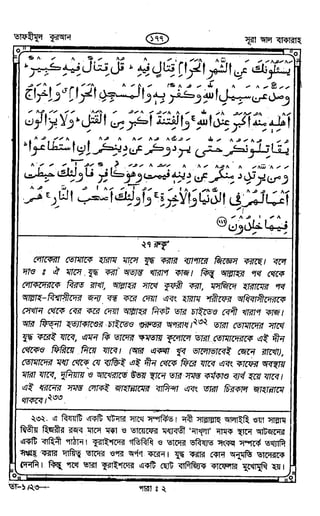 তাফহীমুল কুরআন
১৭৭
সূরা আল বাকারাহ
يَسْئَلُوْنَكَ عَنِ الشَّهْرِ الْحَرَامِ قِتَالٍ فِيْهِ ؕ قُلْ قِتَالٌ فِيْهِ كَبِيْرٌ ؕ
وَصَدٌّ عَنْ سَبِيْلِ اللهِ وَكُفْرٌۢ بِهٖ وَالْمَسْجِدِ الْحَرَامِ ق وَاِخْرَاجُ
اَهْلِهٖ مِنْهُ اَكْبَرُ عِنْدَ اللهِ ۚ وَالْفِتْنَةُ اَكْبَرُ مِنَ الْقَتْلِ ؕ وَلَا يَزَالُوْنَ
يُقَاتِلُوْنَكُمْ حَتّٰى يَرُدُّوْكُمْ عَنْ دِيْنِكُمْ اِنِ اسْتَطَاعُوْا ؕ
وَمَنْ يَّرْتَدِدْ مِنْكُمْ عَنْ دِيْنِهٖ فَيَمُتْ وَهُوَ كَافِرٌ فَاُولٰٓئِكَ حَبِطَتْ
اَعْمَالُهُمْ فِى الدُّنْيَا وَالْاٰخِرَةِ ۚ وَاُولٰٓئِكَ اَصْحٰبُ النَّارِ ۚ هُمْ
فِيْهَا خٰلِدُوْنَ
২৭ রুকু'
লোকেরা তোমাকে হারাম মাসে যুদ্ধ করার ব্যাপারে জিজ্ঞেস করছে। বলে
দাও ঃ ঐ মাসে যুদ্ধ করা অত্যন্ত খারাপ কাজ। কিন্তু আল্লাহর পথ থেকে
লোকদেরকে বিরত রাখা, আল্লাহর সাথে কুফরী করা, মসজিদে হারামের পথ
আল্লাহ-বিশ্বাসীদের জন্য বন্ধ করে দেয়া এবং হারাম শরীফের অধিবাসীদেরকে
সেখান থেকে বের করে দেয়া আল্লাহর নিকট তার চাইতেও বেশী খারাপ কাজ।
আর ফিত্‌না হত্যাকাণ্ডের চাইতেও গুরুতর অপরাধ।২৩২ তারা তোমাদের সাথে
যুদ্ধ করেই যাবে, এমন কি তাদের ক্ষমতায় কুলোলে তারা তোমাদেরকে এই দীন
থেকেও ফিরিয়ে নিয়ে যাবে। (আর একথা খুব ভালোভাবেই জেনে রাখো),
তোমাদের মধ্য থেকে যে ব্যক্তিই এই দীন থেকে ফিরে যাবে এবং কাফের অবস্থায়
মারা যাবে, দুনিয়ায় ও আখেরাতে উভয় স্থানে তার সমস্ত কর্মকাণ্ড ব্যর্থ হয়ে যাবে।
এই ধরনের সমস্ত লোকই জাহান্নামের বাসিন্দা এবং তারা চিরকাল জাহান্নামে
থাকবে।২৩৩
২৩২. এ বিষয়টি একটি ঘটনার সাথে সম্পর্কিত। নবী সাল্লাল্লাহু আলাইহি ওয়া সাল্লাম
দ্বিতীয় হিজরীর রজব মাসে মক্কা ও তায়েফের মধ্যবর্তী 'নাখ্‌লা' নামক স্থানে আটজনের
একটি বাহিনী পাঠান। কুরাইশদের গতিবিধি ও তাদের ভবিষ্যত সংকল্প সম্পর্কে তথ্যাদি
সংগ্রহ করার দায়িত্ব তাদের ওপর অর্পণ করেন। যুদ্ধ করার কোন অনুমতি তাদেরকে
দেননি। কিন্তু পথে তারা কুরাইশদের একটি ছোট বাণিজ্যিক কাফেলার মুখোমুখি হয়।
তা-১/২৩—
পারা ঃ ২